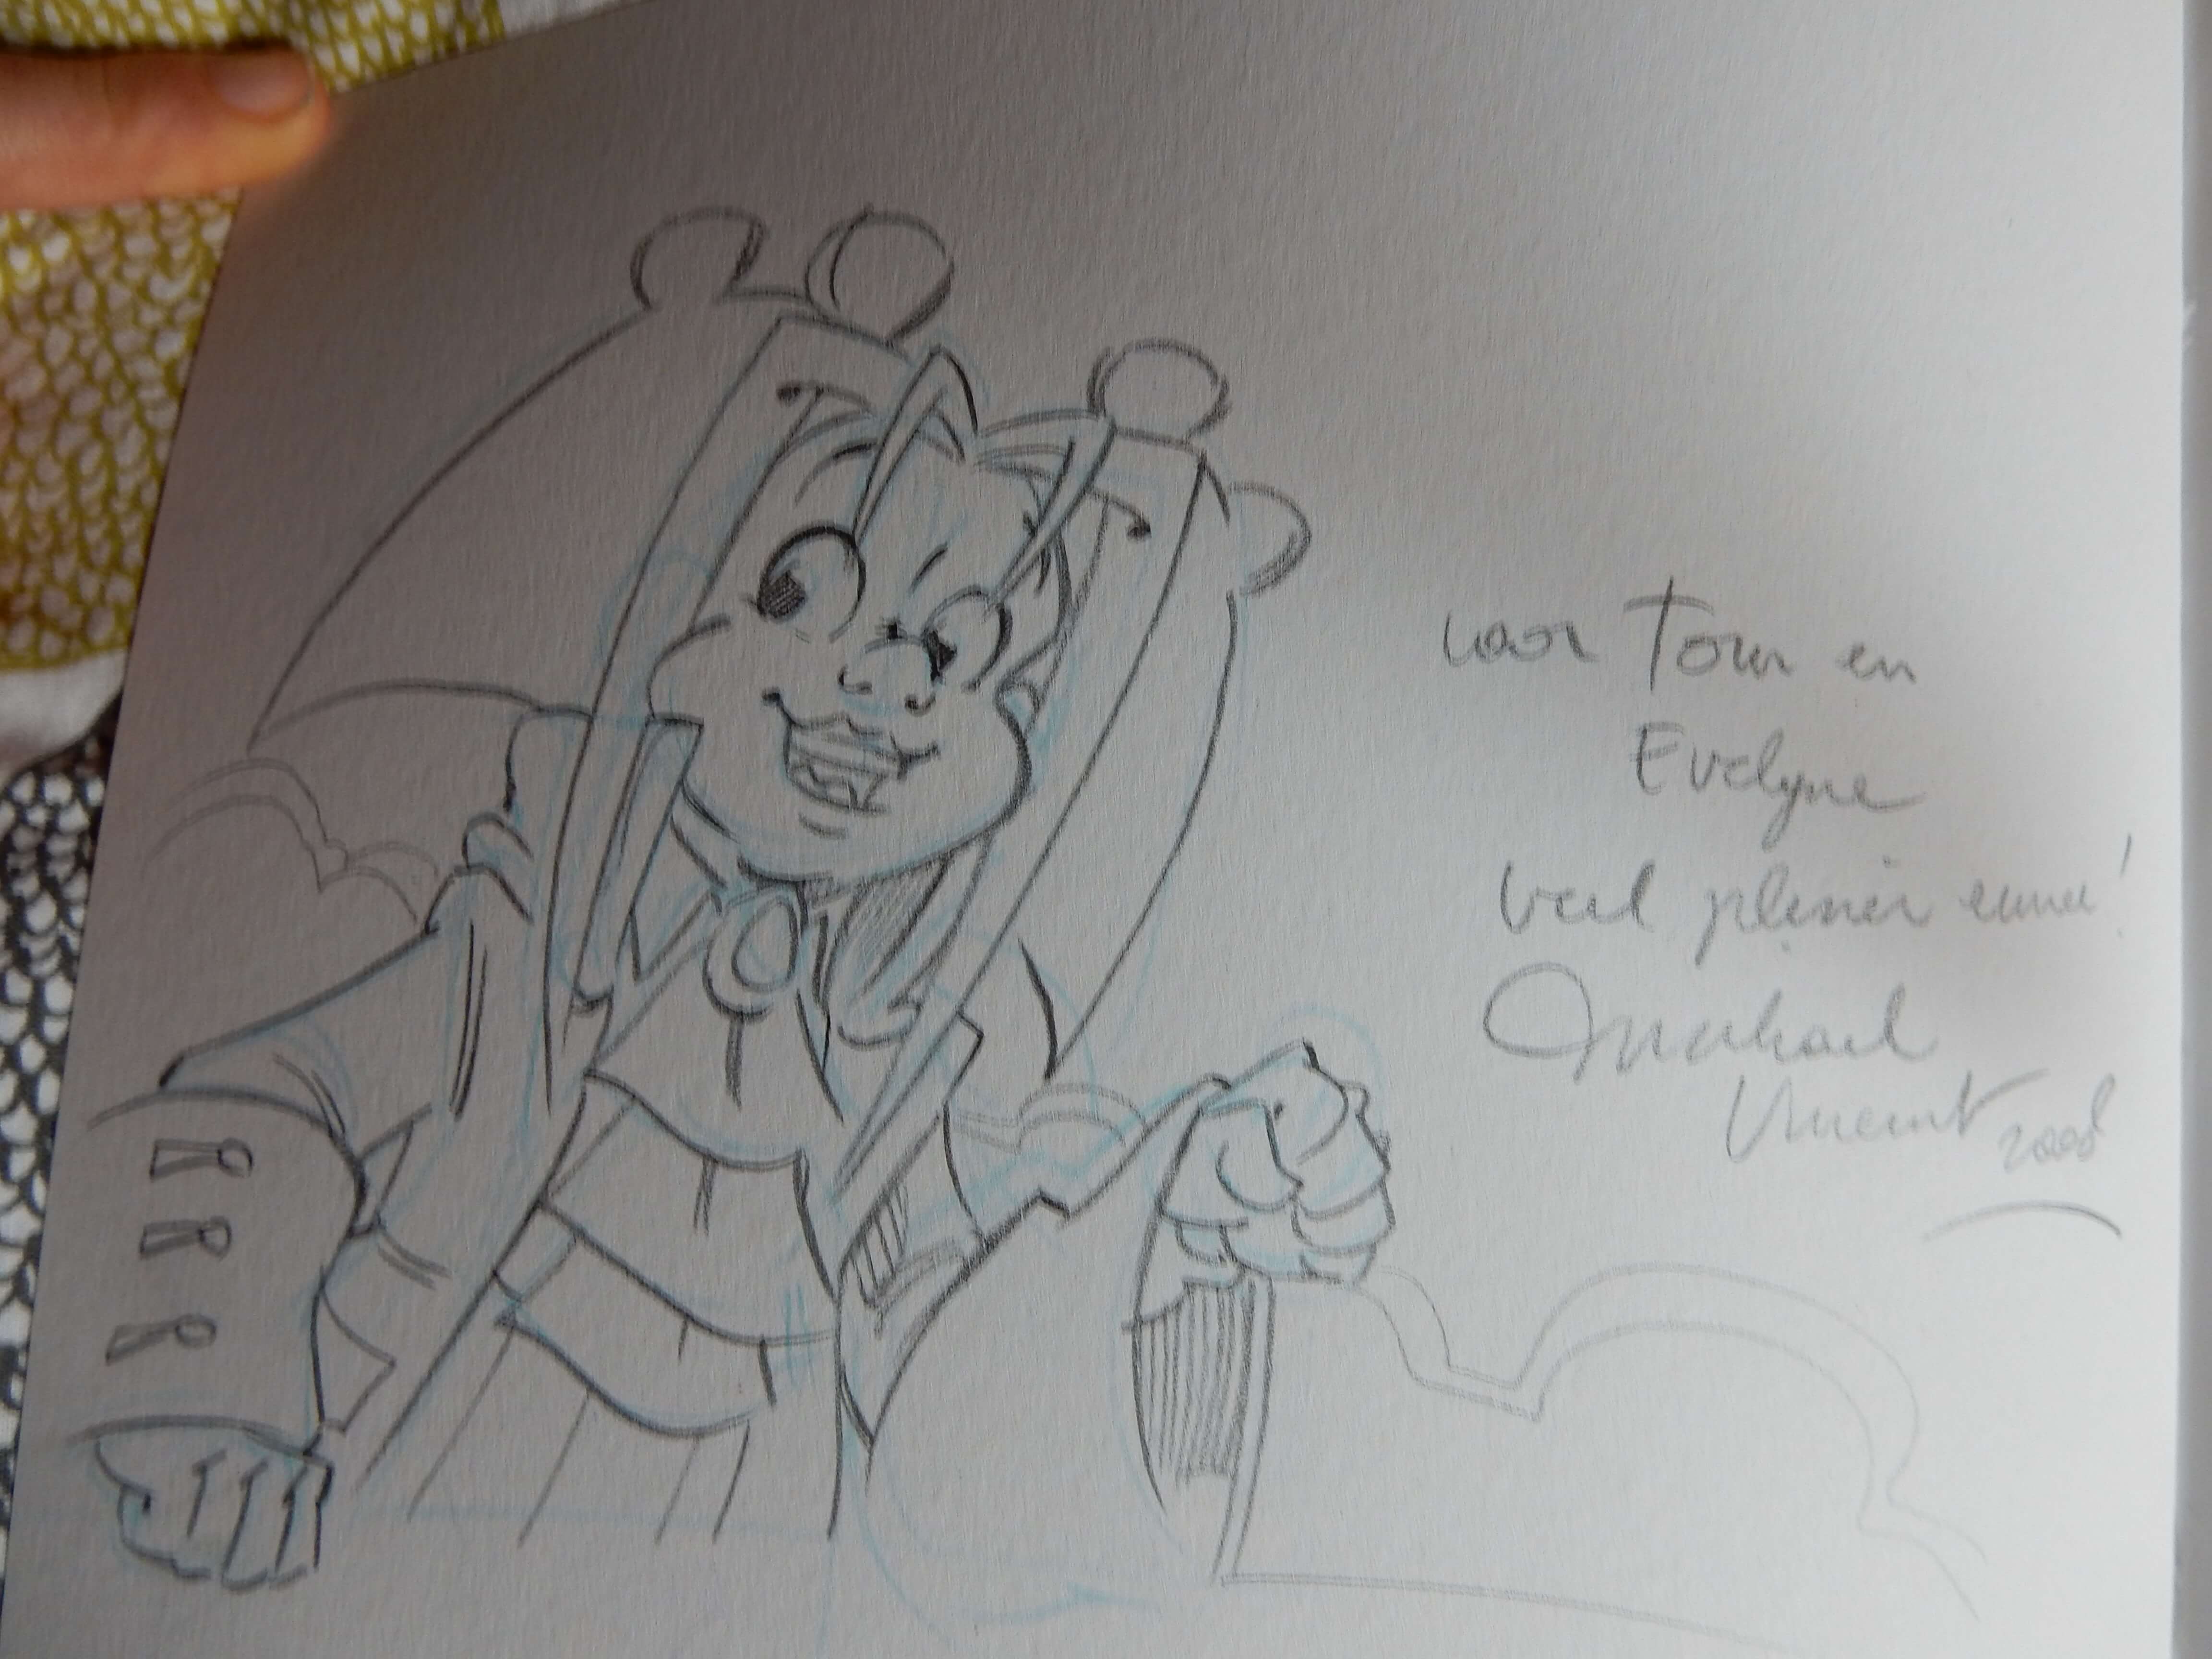 voor Tom en
Evelyne
veel plezier ermee!
Michael
Vincent 2008